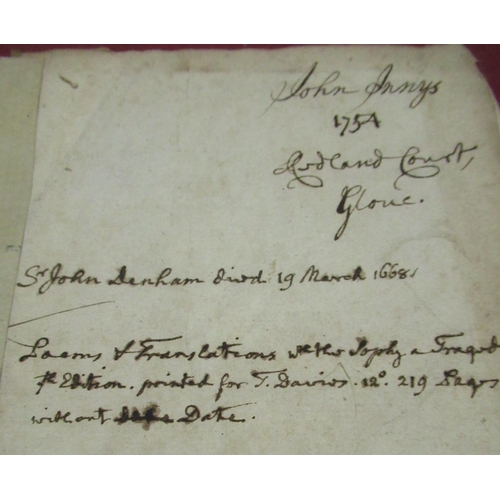 John Innys
1754
Redland Court,
Glouc.
Sr. John Denham died 19 March 1668.
Poems & Translations wth the Sophy a Traged
Edition. printed for T. Davies. 12o. 219 Pages
without Date.